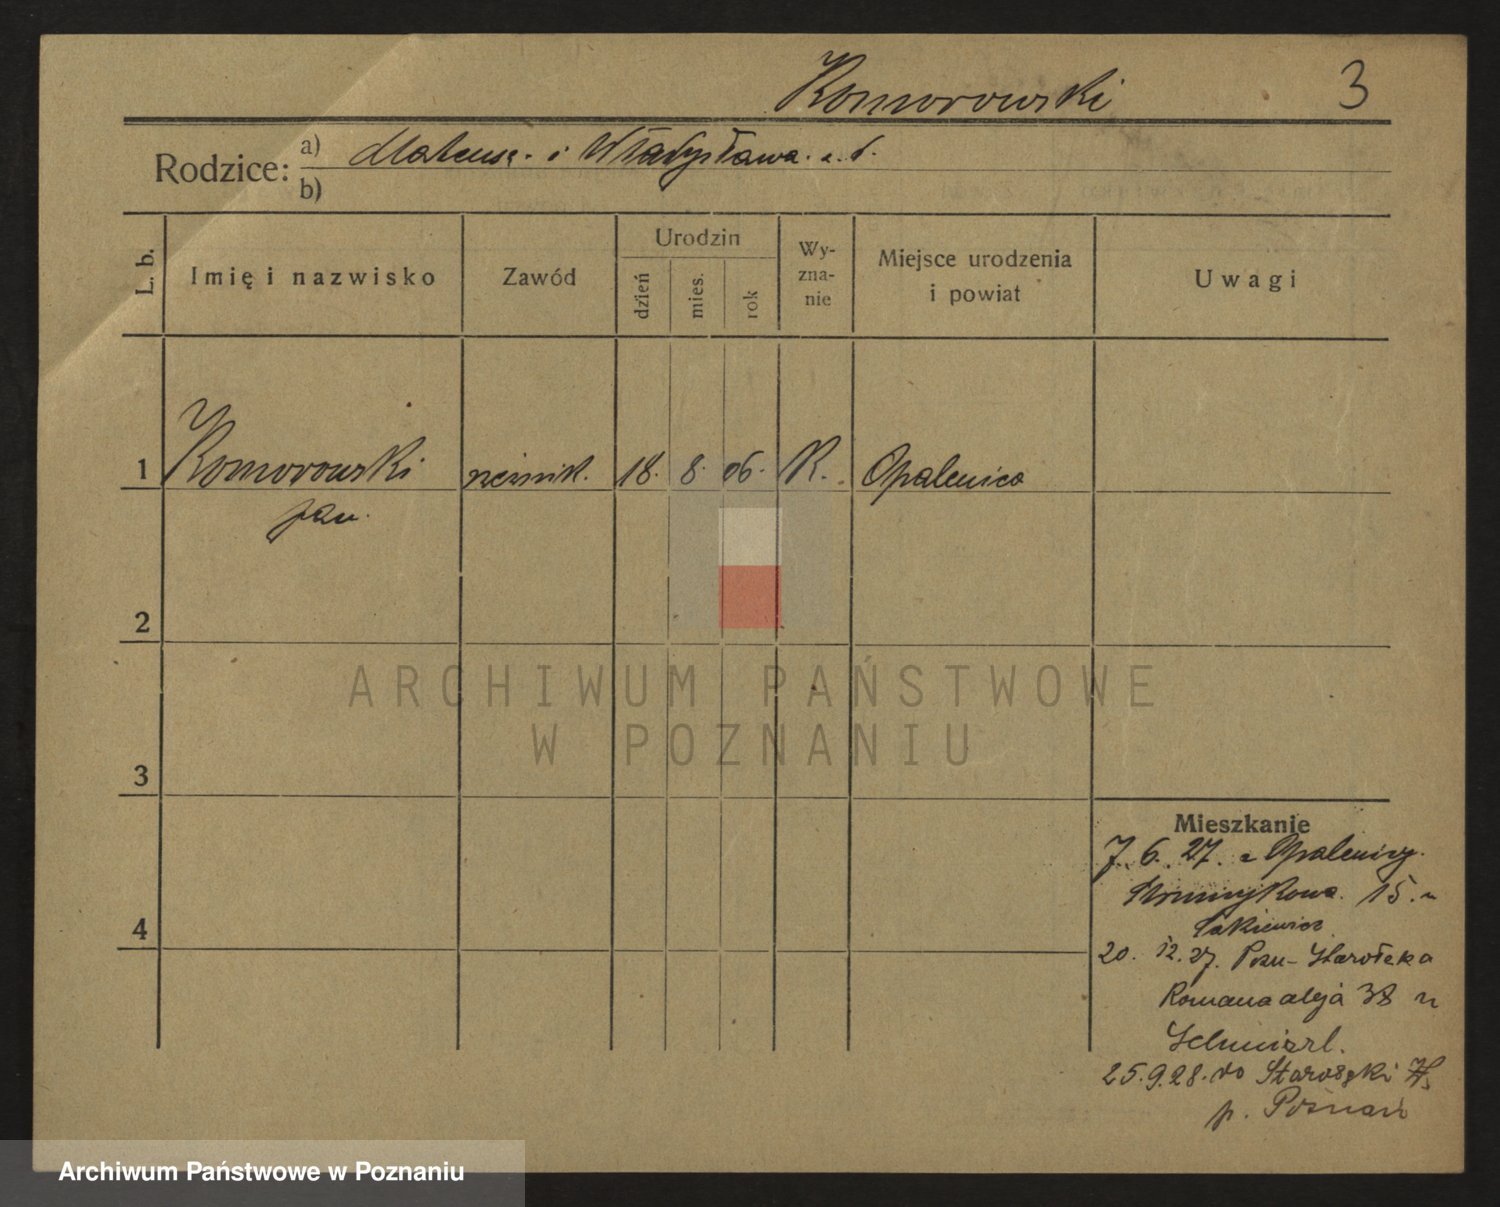 Komorowski 3
Rodzice: a) Mateusz. i Władysława. z. d.
b)
L. b. Imię i nazwisko Zawód Urodzin dzień mies. rok Wy-zna-nie Miejsce urodzenia i powiat Uwagi
1 Komorowski rzeźnik. 18. 8. 06. K. Opalenica
Jan.
2
3
4
ARCHIWUM PAŃSTWOWE
W POZNANIU
Mieszkanie
7. 6. 27. z Opalenicy.
15. u
20. 12. 27. Pozn- Starołęka
Romana aleja 38 u
25. 9. 28. do Starołęki
p. Poznań
Archiwum Państwowe w Poznaniu